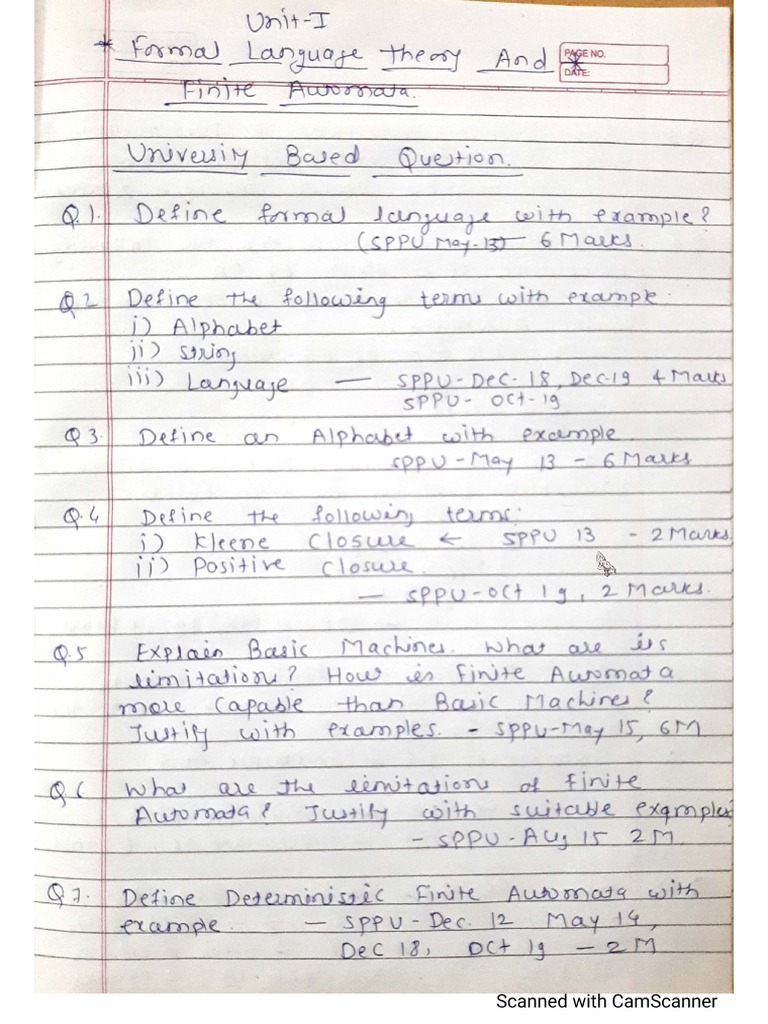 Unit-I
* Formal Language Theory And
PAGE NO.
DATE:
Finite Automata.
University Based Question.
Q1. Define formal language with example?
(SPPU May-13) 6 Marks.
Q2 Define the following terms with example.
i) Alphabet
ii) String
iii) Language — SPPU-Dec-18, Dec-19 4 Marks
SPPU- Oct-19
Q3. Define an Alphabet with example.
SPPU-May 13 - 6 Marks
Q.4 Define the following terms:
i) Kleene Closure ← SPPU 13 - 2 Marks.
ii) Positive Closure.
— SPPU-Oct 19, 2 Marks.
Q.5 Explain Basic Machines. What are its
limitation? How is Finite Automata
more capable than Basic Machines?
Justify with examples. - SPPU-May 15, 6M
Q6 What are the limitations of Finite
Automata? Justify with suitable examples?
- SPPU-Aug 15 2M.
Q7. Define Deterministic Finite Automata with
example. — SPPU-Dec. 12 May 14,
Dec 18, Oct 19 - 2M
Scanned with CamScanner